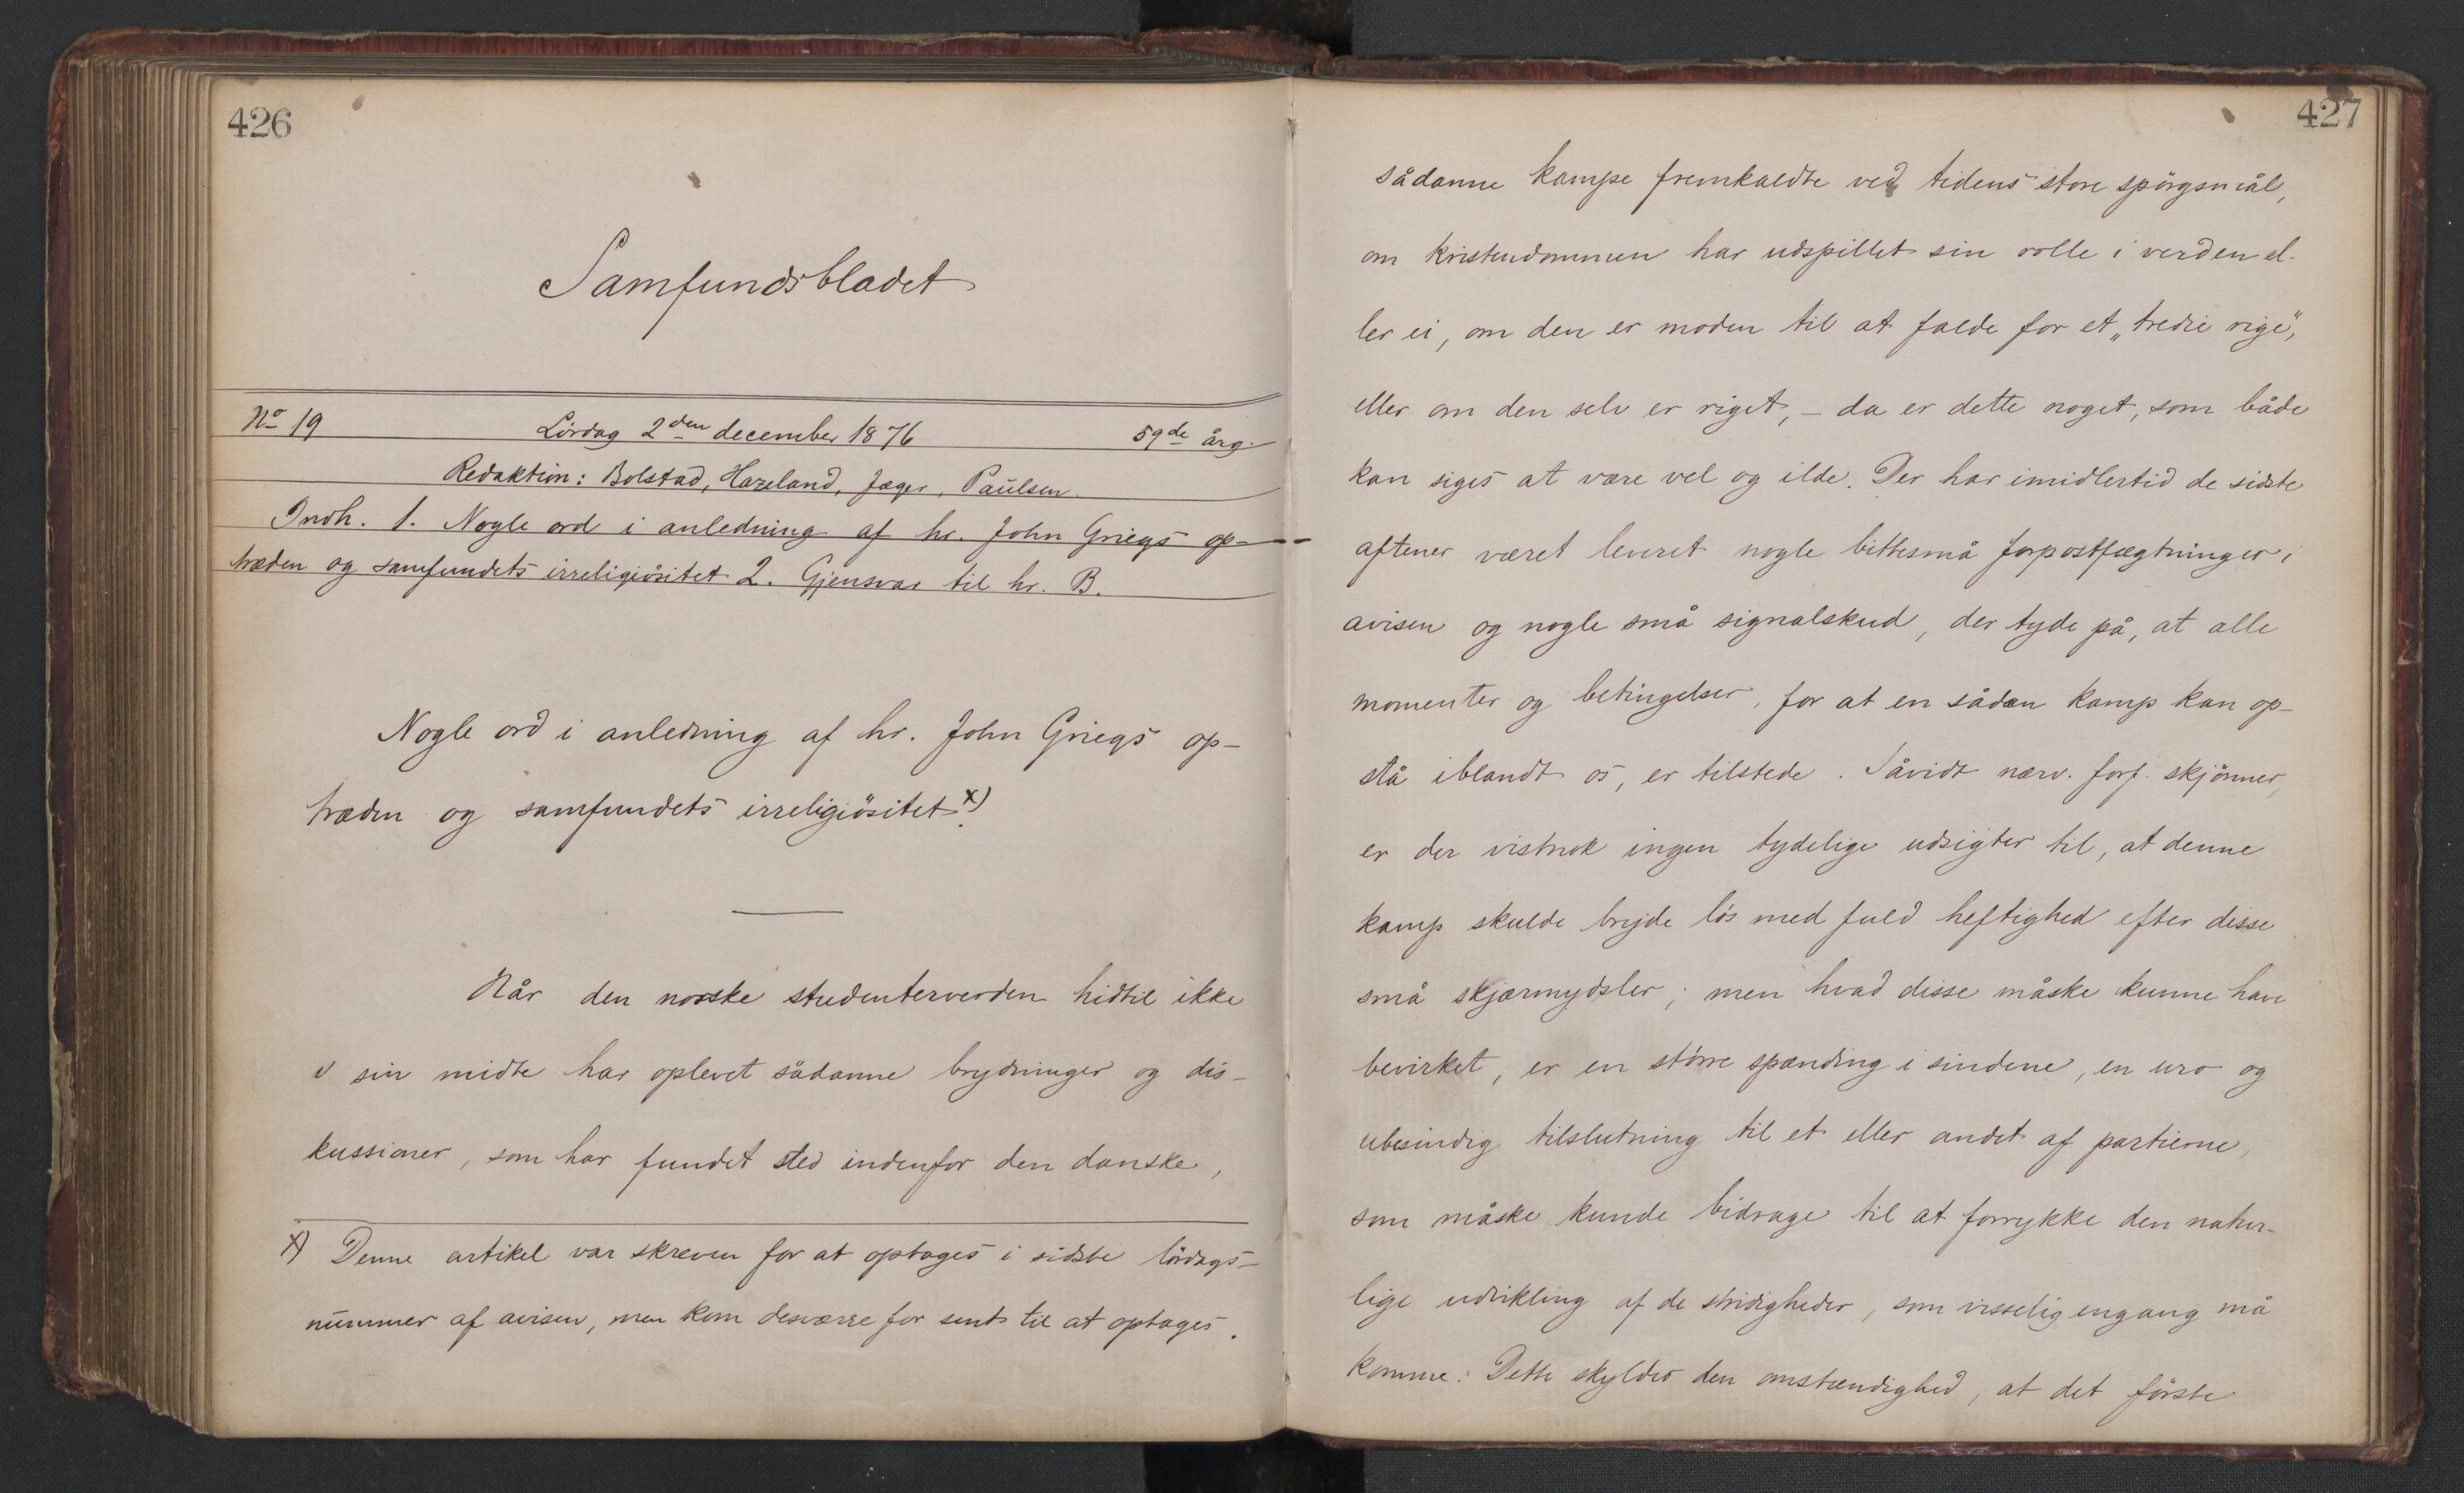 426
Samfundsbladet
No 19 Lördag 2den december 1876 59de årg.
Redaktion: Bolstad, Hazeland, Jæger, Paulsen.
Indh. 1. Nogle ord i anledning af hr. John Griegs op-
træden og samfundets irreligiösitet 2. Gjensvar til hr. B.
Nogle ord i anledning af hr. John Griegs op-
træden og samfundets irreligiösitet x).
Når den norske studenterverden hidtil ikke
i sin midte har oplevet sådanne brydninger og dis-
kussioner, som har fundet sted indenfor den danske,
x) Denne artikel var skreven for at optages i sidste lördags-
nummer af avisen, men kom desværre for sent til at optages.
427
sådanne kampe fremkaldte ved tidens store spörgsmål,
om kristendommen har udspillet sin rolle i verden el-
ler ei, om den er moden til at falde for et „tredie rige",
eller om den selv er riget, – da er dette noget, som både
kan siges at være vel og ilde. Der har imidlertid de sidste
aftener været leveret nogle bittesmå forpostfægtninger i
avisen og nogle små signalskud, der tyde på, at alle
momenter og betingelser, for at en sådan kamp kan op-
stå iblandt os, er tilstede. Såvidt nærv. forf. skjönner,
er der vistnok ingen tydelige udsigter til, at denne
kamp skulde bryde lös med fuld heftighed efter disse
små skjærmydsler; men hvad disse måske kunne have
bevirket, er en större spænding i sindene, en uro og
ubesindig tilslutning til et eller andet af partierne,
som måske kunde bidrage til at forrykke den natur-
lige udvikling af de stridigheder, som visselig engang må
komme. Dette skyldes den omstændighed, at det förste